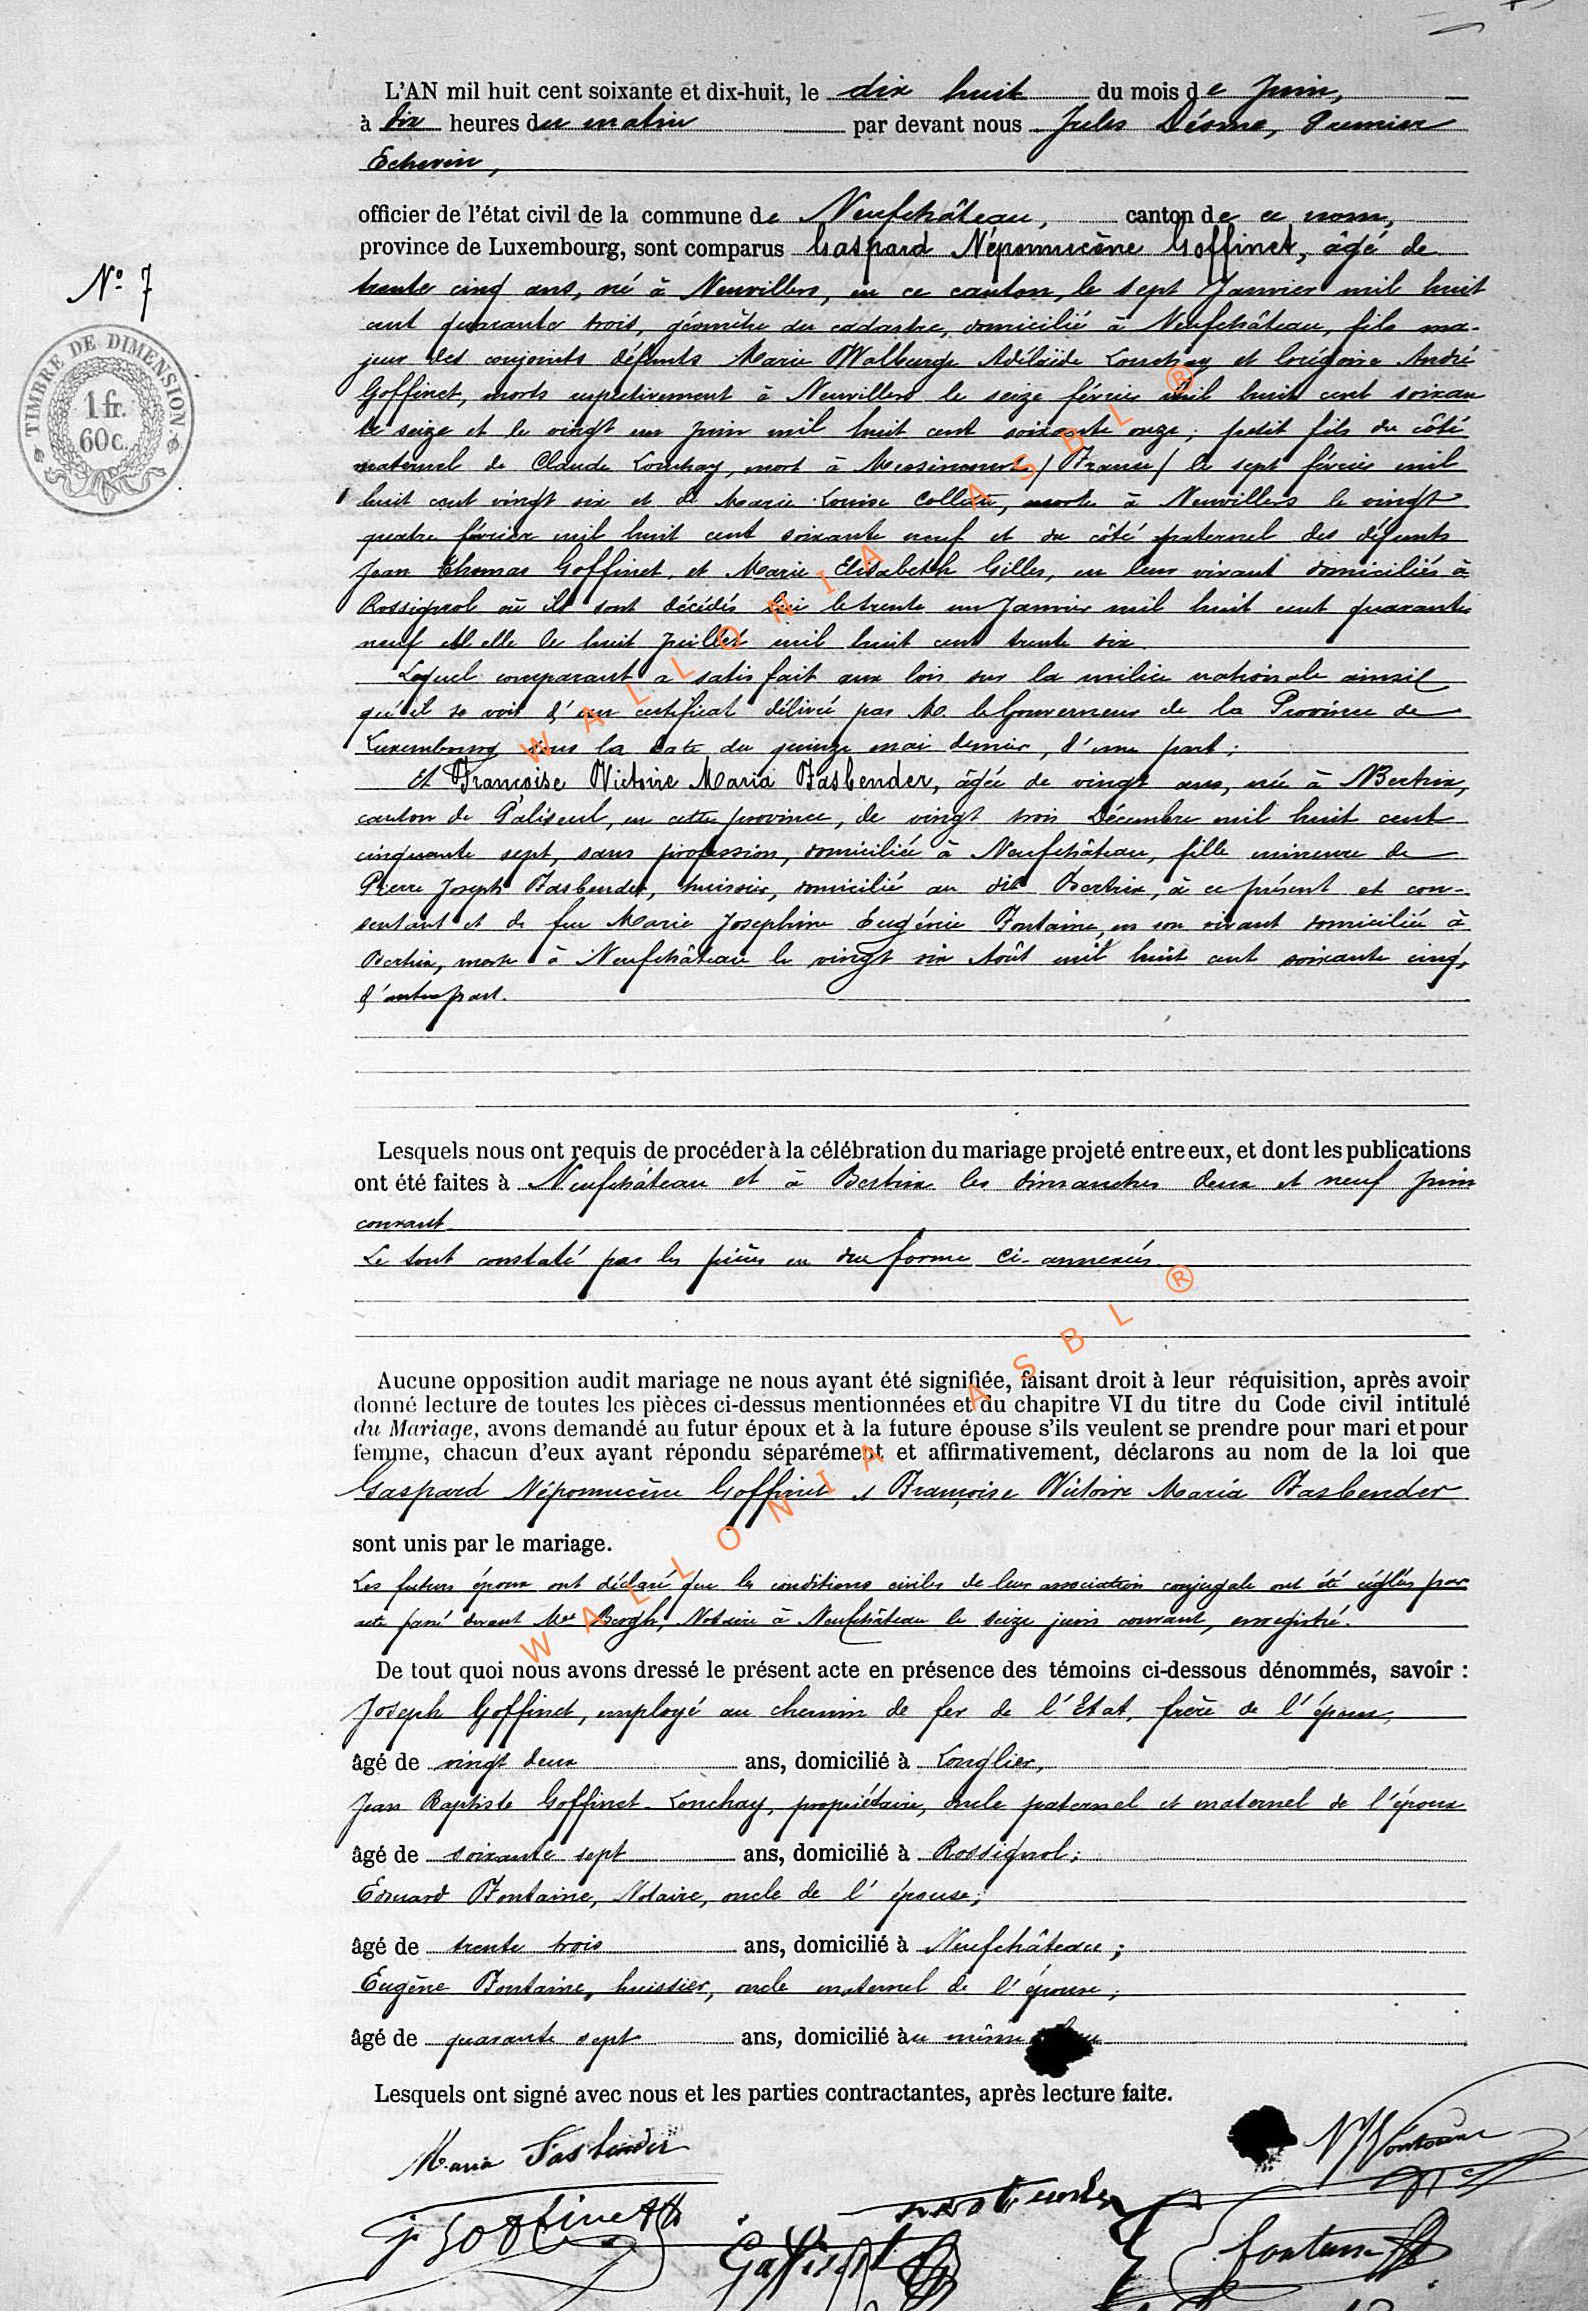 L'AN mil huit cent soixante et dix-huit, le dix huit du mois de Juin,
à dix heures du matin par devant nous Jules Désme, Premier
Echevin,
officier de l'état civil de la commune de Neufchâteau, canton de ce nom,
province de Luxembourg, sont comparus Gaspard Népomucène Goffinet, âgé de
N° 7
trente cinq ans, né à Neuvillers, en ce canton, le sept Janvier mil huit
cent quarante trois, géomètre du cadastre, domicilié à Neufchâteau, fils ma-
TIMBRE DE DIMENSION
1 fr.
60 c.
jeur des conjoints défunts Marie Walburge Adélaïde Lonchay et Grégoire André
Goffinet, morts respectivement à Neuvillers le seize février mil huit cent soixan
te seize et le vingt un juin mil huit cent soixante onze; petit fils du côté
maternel de Claude Lonchay, mort à Messincourt / France / le sept février mil
huit cent vingt six et de Marie Louise morte à Neuvillers le vingt
quatre février mil huit cent soixante neuf et du côté paternel des défunts
Jean Thomas Goffinet, et Marie Elisabeth Gilles, en leur vivant domiciliés à
Rossignol où ils sont décédés lui le trente un Janvier mil huit cent quarante
neuf et elle le huit juillet mil huit cent trente six.
Lequel comparant a satisfait aux lois sur la milice nationale ainsi
qu'il se voit d'un certificat délivré par M. le Gouverneur de la Province de
Luxembourg sous la date du quinze mai dernier, d'une part;
Et Françoise Victoire Maria Fasbender, âgée de vingt ans, née à Bertrix,
canton de Paliseul, en cette province, le vingt trois Décembre mil huit cent
cinquante sept, sans profession, domiciliée à Neufchâteau, fille mineure de
Pierre Joseph Fasbender, huissier, domicilié au dit Bertrix, à ce présent et con-
sentant et de feu Marie Josephine Eugénie Fontaine, en son vivant domiciliée à
Bertrix, morte à Neufchâteau le vingt six Août mil huit cent soixante cinq,
d'autre part.
Lesquels nous ont requis de procéder à la célébration du mariage projeté entre eux, et dont les publications
ont été faites à Neufchâteau et à Bertrix les dimanches deux et neuf juin
courant
Le tout constaté par les pièces en due forme ci-annexées.
Aucune opposition audit mariage ne nous ayant été signifiée, faisant droit à leur réquisition, après avoir
donné lecture de toutes les pièces ci-dessus mentionnées et du chapitre VI du titre du Code civil intitulé
du Mariage, avons demandé au futur époux et à la future épouse s'ils veulent se prendre pour mari et pour
femme, chacun d'eux ayant répondu séparément et affirmativement, déclarons au nom de la loi que
Gaspard Népomucène Goffinet et Françoise Victoire Maria Fasbender
sont unis par le mariage.
Les futurs époux ont déclaré que les conditions civiles de leur association conjugale ont été réglées par
acte passé devant Me Bergh, Notaire à Neufchâteau le seize juin courant, enregistré.
De tout quoi nous avons dressé le présent acte en présence des témoins ci-dessous dénommés, savoir :
Joseph Goffinet, employé au chemin de fer de l'Etat, frère de l'époux,
âgé de vingt deux ans, domicilié à Longlier,
Jean Baptiste Goffinet-Lonchay, propriétaire, oncle paternel et maternel de l'époux
âgé de soixante sept ans, domicilié à Rossignol;
Edouard Fontaine, Notaire, oncle de l'épouse;
âgé de trente trois ans, domicilié à Neufchâteau;
Eugène Fontaine, huissier, oncle maternel de l'épouse;
âgé de quarante sept ans, domicilié au même
Lesquels ont signé avec nous et les parties contractantes, après lecture faite.
Maria Fasbender
J. Goffinet
Goffinet
Fontaine
WALLONIA ASBL ®
WALLONIA ASBL ®